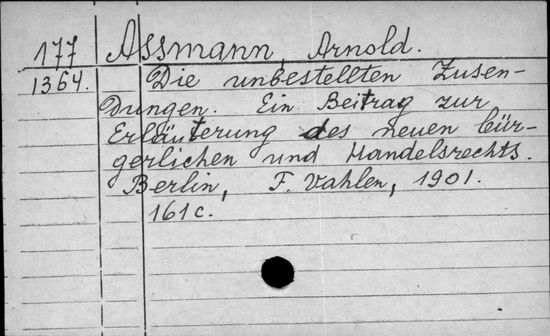 177 Assmann, Arnold.
1364. Die unbestellten Zusen-
dungen. Ein Beitrag zur
Erläuterung des neuen bür-
gerlichen und Handelsrechts.
Berlin, F. Vahlen, 1901.
161 c.